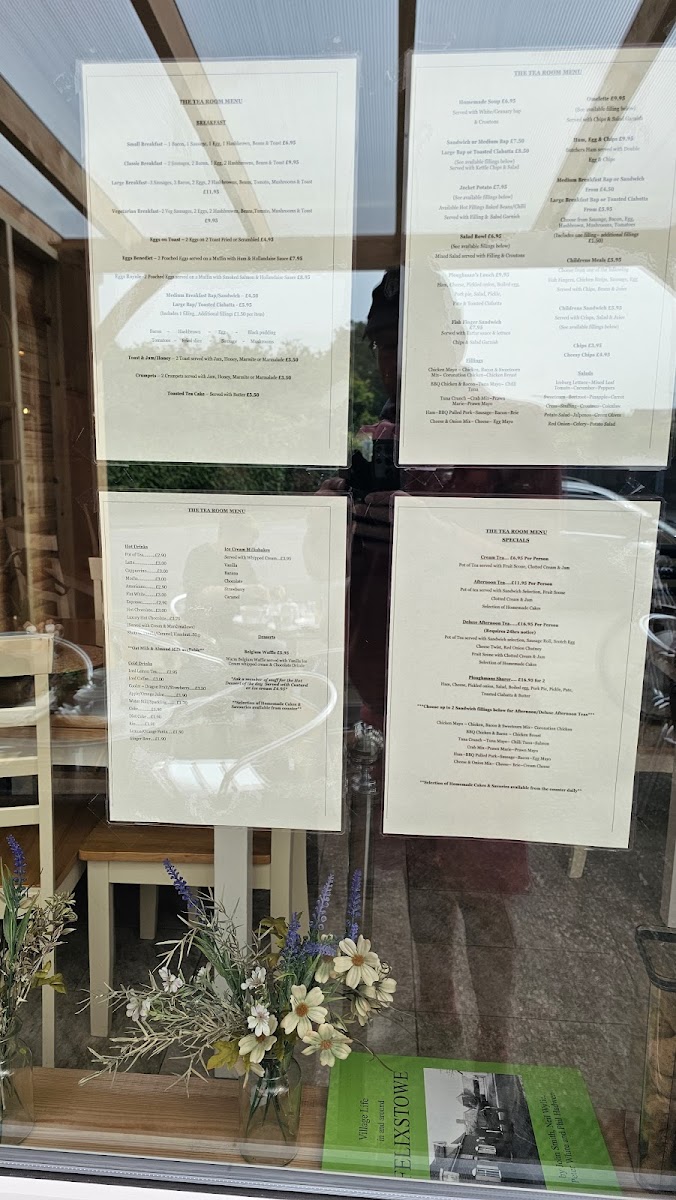 THE TEA ROOM MENU
BREAKFAST
Small Breakfast – 1 Bacon, 1 Sausage, 1 Egg, 1 Hashbrown, Beans & Toast £6.95
Classic Breakfast – 2 Sausages, 2 Bacon, 2 Eggs, 2 Hashbrowns, Beans & Toast £9.95
Large Breakfast -3 Sausages, 3 Bacon, 2 Eggs, 2 Hashbrowns, Beans, Tomato, Mushrooms & Toast
£11.95
Vegetarian Breakfast- 2 Veg Sausages, 2 Eggs, 2 Hashbrowns, Beans, Tomato, Mushrooms & Toast
£9.95
Eggs on Toast – 2 Eggs on 2 Toast Fried or Scrambled £4.95
Eggs Benedict – 2 Poached Eggs served on a Muffin with Ham & Hollandaise Sauce £7.95
Eggs Royale- 2 Poached Eggs served on a Muffin with Smoked Salmon & Hollandaise Sauce £8.95
Medium Breakfast Bap/Sandwich – £4.50
Large Bap/ Toasted Ciabatta – £5.95
(Includes 1 filling, Additional fillings £1.50 per item)
Bacon – Hashbrown – Egg – Black pudding
Tomatoes – Sausage – Mushrooms
Toast & Jam/Honey – 2 Toast served with Jam, Honey, Marmite or Marmalade £3.50
Crumpets – 2 Crumpets served with Jam, Honey, Marmite or Marmalade £3.50
Toasted Tea Cake – Served with Butter £3.50
THE TEA ROOM MENU
Homemade Soup £6.95
Served with White/Granary bap
& Croutons
Sandwich or Medium Bap £7.50
Large Bap or Toasted Ciabatta £8.50
(See available fillings below)
Served with Kettle Chips & Salad
Jacket Potato £7.95
(See available fillings below)
Available Hot Fillings Baked Beans/Chilli
Served with Filling & Salad Garnish
Salad Bowl £6.95
(See available fillings below)
Mixed Salad served with Filling & Croutons
Ploughman's Lunch £9.95
Ham, Cheese, Pickled onion, Boiled egg,
Pork pie, Salad, Pickle,
Pate & Toasted Ciabatta
Fish Finger Sandwich
£7.95
Chips & salad Garnish
Fillings
Chicken Mayo – Chicken, Bacon & Sweetcorn
Mix– Coronation Chicken–Chicken Breast
BBQ Chicken & Bacon–Tuna Mayo– Chilli
Tuna
Tuna Crunch –Crab Mix–Prawn
Marie–Prawn Mayo
Ham–BBQ Pulled Pork–Sausage–Bacon–Brie
Cheese & Onion Mix– Cheese– Egg Mayo
Omelette £9.95
(See available filling below)
Served with Chips & Salad Garnish
Ham, Egg & Chips £9.95
Butchers Ham served with Double
Egg & Chips
Medium Breakfast Bap or Sandwich
From £4.50
Large Breakfast Bap or Toasted Ciabatta
From £5.95
Choose from Sausage, Bacon, Egg,
Hashbrown, Mushrooms, Tomatoes
(Includes one filling– additional fillings
£1.50)
Childrens Meals £5.95
Choose from one of the following
Fish Fingers, Chicken Strips, Sausage, Egg
Served with Chips, Beans & Juice
Childrens Sandwich £5.95
Served with Crisps, Salad & Juice
(See available filling below)
Chips £3.95
Cheesy Chips £4.95
Salads
Iceberg Lettuce–Mixed Leaf
Tomato–Cucumber–Peppers
Sweetcorn–Beetroot–Pineapple–Carrot
Potato Salad–Jalpenos–Green Olives
Red Onion–Celery–Potato Salad
THE TEA ROOM MENU
Hot Drinks
Pot of Tea......£2.90
Latte
Cappuccino
Mocha
Americano
Flat White
Espresso
Hot Chocolate
Luxury Hot Chocolate
(Served with Cream & Marshmallows)
Cold Drinks
Ice Cream Milkshakes
Served with Whipped Cream....£5.95
Vanilla
Banana
Chocolate
Strawberry
Caramel
Desserts
Belgium Waffle £5.95
Warm Belgium Waffle served with Vanilla Ice
Cream whipped cream & Chocolate Drizzle
*Ask a member of staff for the Hot
Dessert of the day. Served with Custard
or ice cream £6.95*
**Selection of Homemade Cakes &
Savouries available from counter**
THE TEA ROOM MENU
SPECIALS
Cream Tea.... £6.95 Per Person
Pot of Tea served with Fruit Scone, Clotted Cream & Jam
Afternoon Tea....£11.95 Per Person
Pot of tea served with Sandwich Selection, Fruit Scone
Clotted Cream & Jam
Selection of Homemade Cakes
Deluxe Afternoon Tea.....£16.95 Per Person
(Requires 24hrs notice)
Pot of Tea Served with Sandwich selection, Sausage Roll, Scotch Egg
Cheese Twist, Red Onion Chutney
Fruit Scone with Clotted Cream & Jam
Selection of Homemade Cakes
Ploughmans Sharer..... £16.95 for 2
Ham, Cheese, Pickled onion, Salad, Boiled egg, Pork Pie, Pickle, Pate,
Toasted Ciabatta & Butter
***Choose up to 2 Sandwich fillings below for Afternoon/Deluxe Afternoon Teas***
Chicken Mayo – Chicken, Bacon & Sweetcorn Mix – Coronation Chicken
BBQ Chicken & Bacon – Chicken Breast
Tuna Crunch –Tuna Mayo– Chilli Tuna–Salmon
Crab Mix–Prawn Marie–Prawn Mayo
Ham–BBQ Pulled Pork–Sausage–Bacon–Egg Mayo
Cheese & Onion Mix– Cheese– Brie–Cream Cheese
**Selection of Homemade Cakes & Savouries available from the counter daily**
Village Life
in and around
FELIXSTOWE